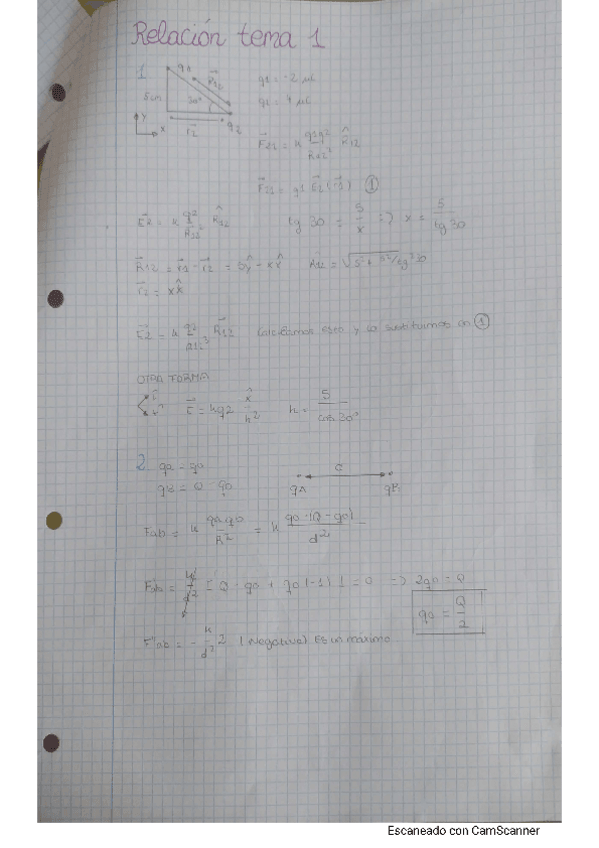 Relación tema 1
1
q1 = -2 μC
5cm
30°
R12
q2 = 4 μC
Y
X
r2
q2
F21 = k q1q2 / R12² R̂12
F21 = q1 E2 (r1) ①
E2 = k q2 / R12² R̂12
tg 30 = 5 / x => x = 5 / tg 30
R12 = r1 - r2 = 5ŷ - xx̂
r2 = xx̂
E2 = k q2 / R12³ R12 Calculamos esto y lo sustituimos en ①
OTRA FORMA
2
qa = q0
qB = Q - q0
qA
qB
Fab = k qa q0 / R² = k q0 · (Q - q0) / d²
F'ab = k / d² [Q - q0 + q0 (-1)] = 0 => 2q0 = Q
q0 = Q / 2
F''ab = - k / d² 2 (Negativo) Es un máximo
Escaneado con CamScanner